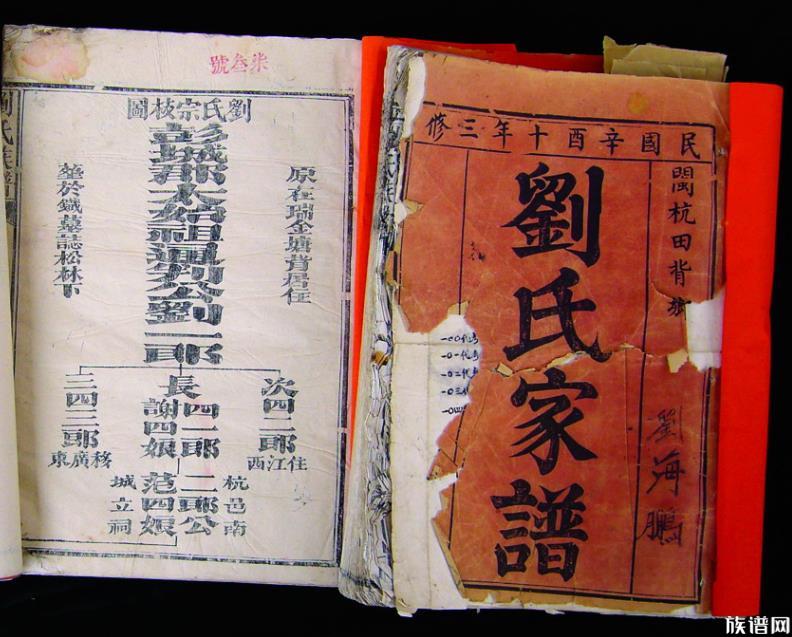 柒叁號
劉氏宗枝圖
原在瑞金塘背居住
彭城郡太始祖通判公劉一郎
葬於鐵墓誌松林下
次四二郎
住江西
長
四一郎
謝四娘
三四三郎
移廣東
杭邑南
二郎公
范四娘
城立祠
民國辛酉十年三修
閩杭田背鄉
劉氏家譜
劉海鵬
族谱网